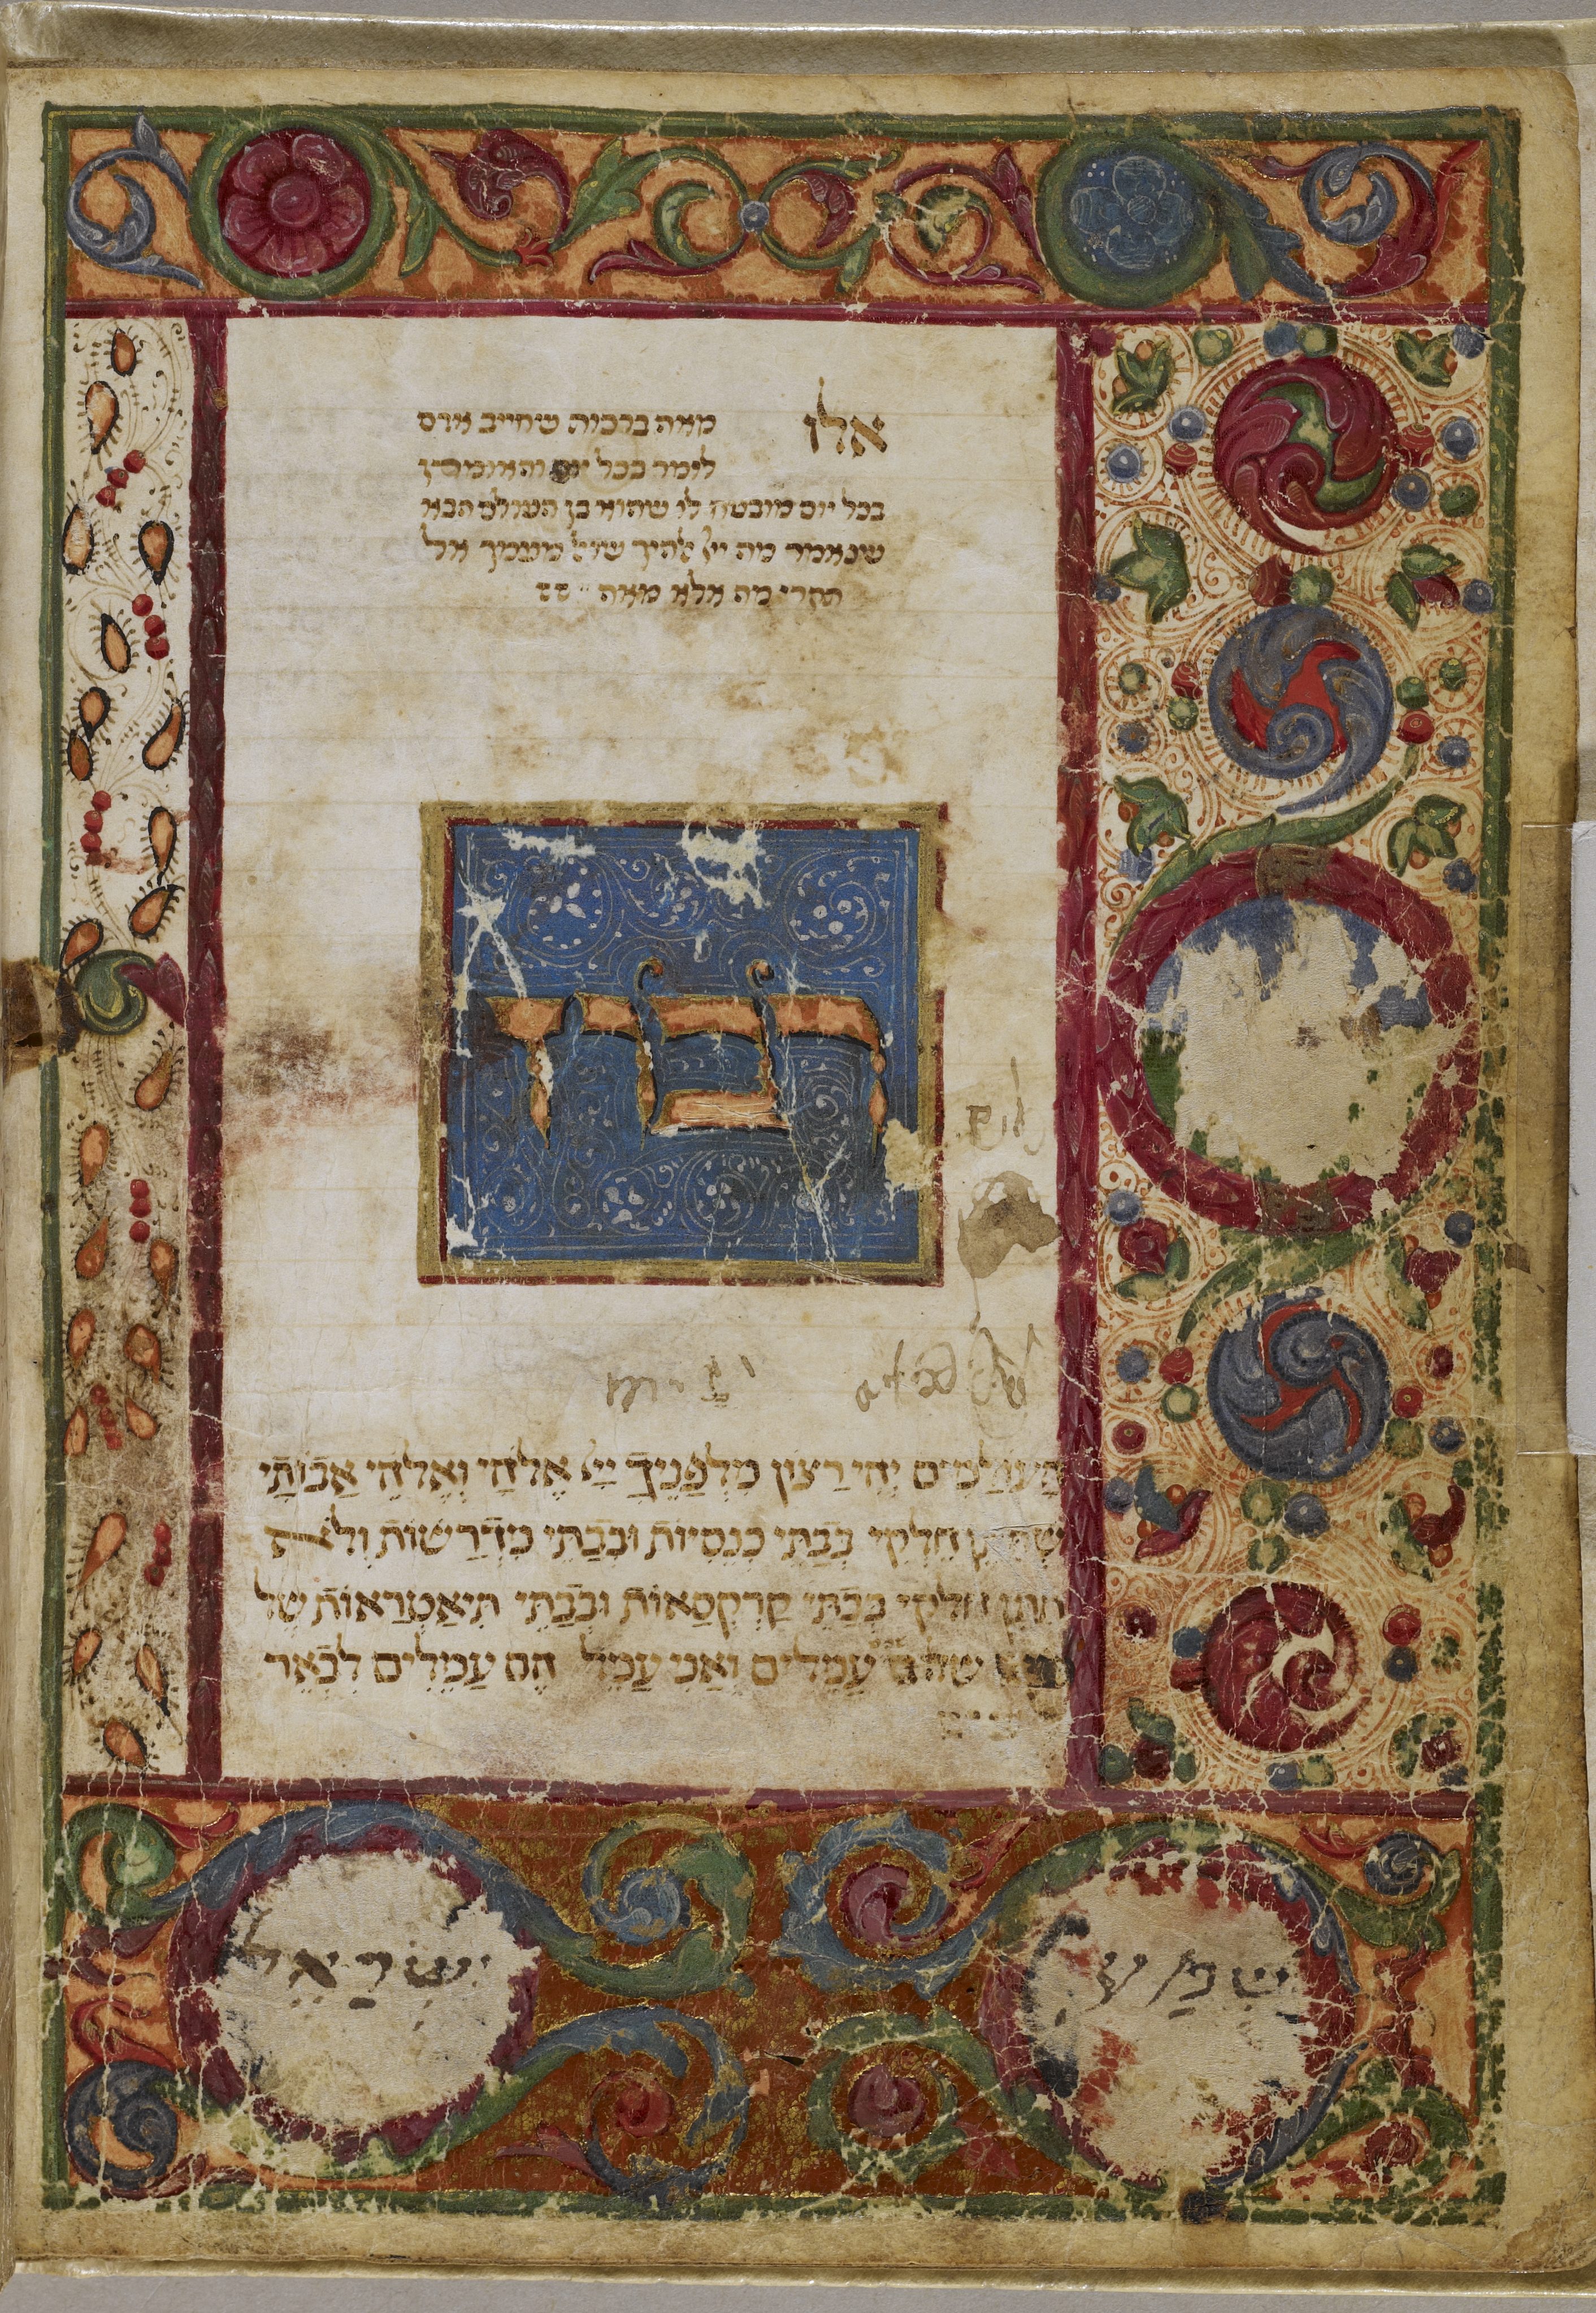 אלו מאה ברכות שחייב אדם
לומר בכל יום והאומרן
בכל יום מובטח לו שהוא בן העולם הבא
שנאמר מה ייי אלהיך שואל מעמך אל
תקרי מה אלא מאה
רבון
הָעוֹלָמִים יְהִי רָצוֹן מִלְּפָנֶיךָ יְיָ אֱלֹהַי וֵאלֹהֵי אֲבוֹתַי
חֶלְקִי בְּבָתֵּי כְנֵסִיּוֹת וּבְבָתֵּי מִדְרָשׁוֹת וְלֹא
חלקי בְּבָתֵּי קַרְקְסָאוֹת וּבְבָתֵּי תֵיאַטְרָאוֹת שֶׁל
עֲמֵלִים וַאֲנִי עָמֵל הֵם עֲמֵלִים לִבְאֵר
שְׁמַע
יִשְׂרָאֵל